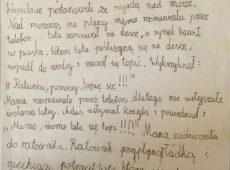 Wspólnie postanowili że pojadą nad morze.
Nad morzem na plaży mama rozmawiała przez
telefon, tata serfował na desce, a synek bawił
w piasku. Wtem tata poślizgną się na desce,
wpadł do wody i zaczął się topić. Wykrzyknął:
"Ratunku, pomocy, topię się!!!"
Mama rozmawiała przez telefon, dlatego nie usłyszała
wołania taty. Adaś usłyszał krzyki i powiedział:
"Mamo, mamo tata się topi!!!" Mama zadzwoniła
do ratownika. Ratownik przypłyną łódką i